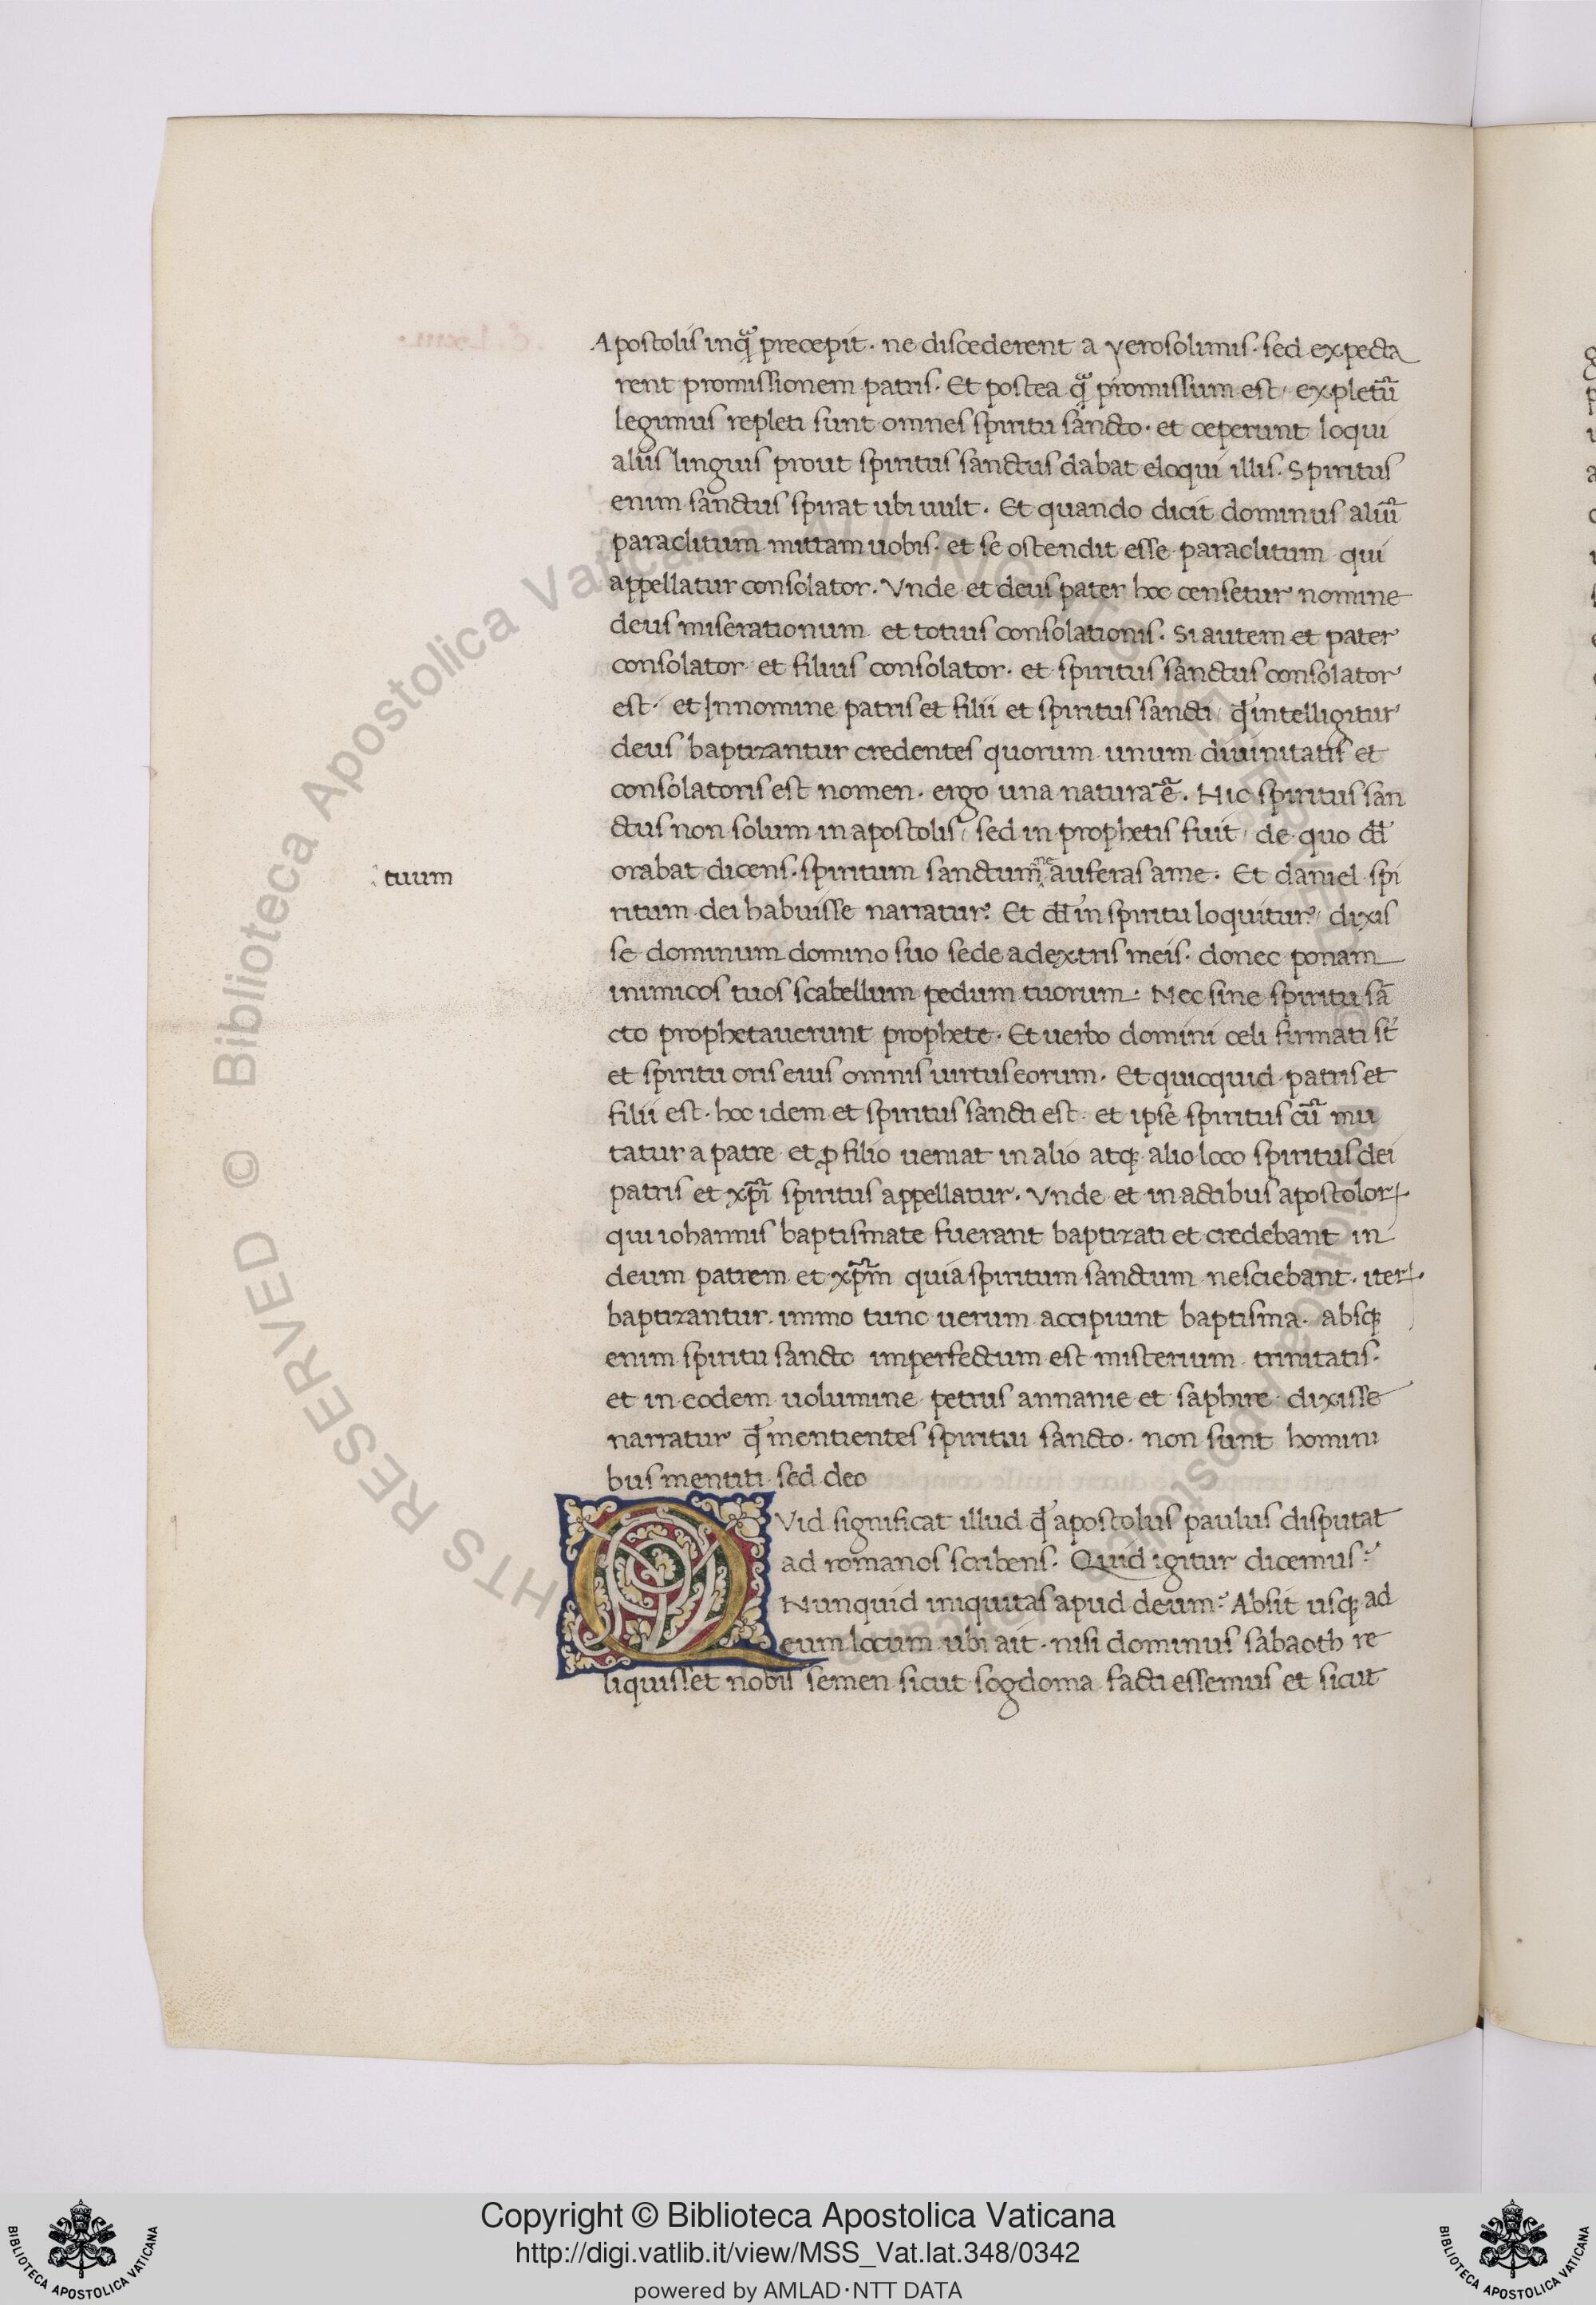 Apostolis inqͣ precepit· ne discederent a yerosolimis· sed expecta
rent promissionem patris· Et postea qͣ promissum est, expletū
legimus repleti sunt omnes spiritu sancto· et ceperunt loqui
aliis linguis prout spiritus sanctus dabat eloqui illis· Spiritus
enim sanctus spirat ubi uult· Et quando dicit dominus aliū
paraclitum mittam uobis· et se ostendit esse paraclitum qui
appellatur consolator· Vnde et deus pater hoc censetur nomine
deus miserationum et totius consolationis· Si autem et pater
consolator et filius consolator· et spiritus sanctus consolator
est· et In nomine patris et filii et spiritus sancti, qđ intelligitur
deus baptizantur credentes quorum unum diuinitatis et
consolatoris est nomen· ergo una natura ē· Hic spiritus san
ctus non solum in apostolis, sed in prophetis fuit, de quo dd̄
tuum
orabat dicens· spiritum sanctum ne auferas a me· Et daniel spi
ritum dei habuisse narratur· Et dd̄ in spiritu loquitur, dixis
se dominum domino suo sede a dextris meis· donec ponam
inimicos tuos scabellum pedum tuorum· Nec sine spiritu sā
cto prophetauerunt prophete· Et uerbo domini celi firmati st̄
et spiritu oris eius omnis uirtus eorum· Et quicquid patris et
filii est· hoc idem et spiritus sancti est· et ipse spiritus cū mu
tatur a patre et ꝓ filio ueniat in alio atqꝫ alio loco spiritus dei
patris et xp̄i spiritus appellatur· Vnde et in actibus apostoloꝝ·
qui iohannis baptismate fuerant baptizati et credebant in
deum patrem et xp̄m quia spiritum sanctum nesciebant· iteꝝ·
baptizantur· immo tunc uerum accipiunt baptisma· absqꝫ
enim spiritu sancto imperfectum est misterium trinitatis·
et in eodem uolumine petrus annanie et saphire dixisse
narratur qđ mentientes spiritui sancto· non sunt homini
bus mentiti sed deo
QVid significat illud qđ apostolus paulus disputat
ad romanos scribens· Quid igitur dicemus?
Nunquid iniquitas apud deum? Absit usqꝫ ad
eum locum ubi ait· nisi dominus sabaoth re
liquisset nobis semen sicut sogdoma facti essemus et sicut
© Biblioteca Apostolica Vaticana
Copyright © Biblioteca Apostolica Vaticana
http://digi.vatlib.it/view/MSS_Vat.lat.348/0342
powered by AMLAD·NTT DATA
BIBLIOTECA APOSTOLICA VATICANA
BIBLIOTECA APOSTOLICA VATICANA